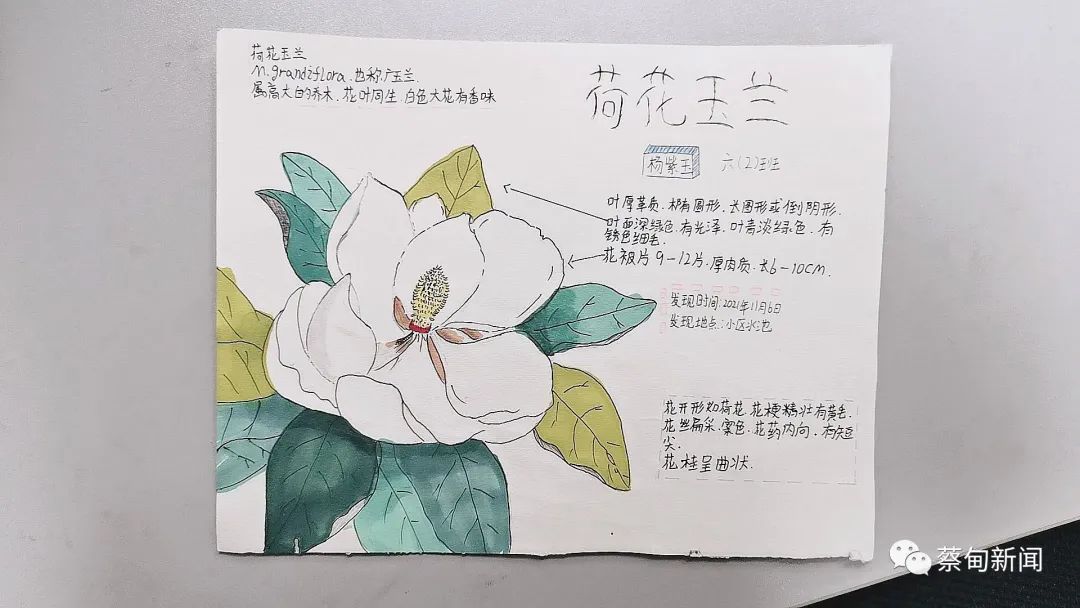 荷花玉兰
M.grandiflora.也称广玉兰.
属高大的乔木.花叶同生.白色大花有香味
荷花玉兰
杨紫玉
六(2)班
叶厚革质.椭圆形.长圆形或倒阴形.
叶面深绿色.有光泽.叶背淡绿色.有
锈色细毛
花被片9-12片.厚肉质.长6-10CM.
发现时间:2021年11月6日
发现地点:小区水池
花开形如荷花.花梗精壮有黄毛.
花丝扁采.紫色.花药内向.有短
尖.
花柱呈曲状.
蔡甸新闻